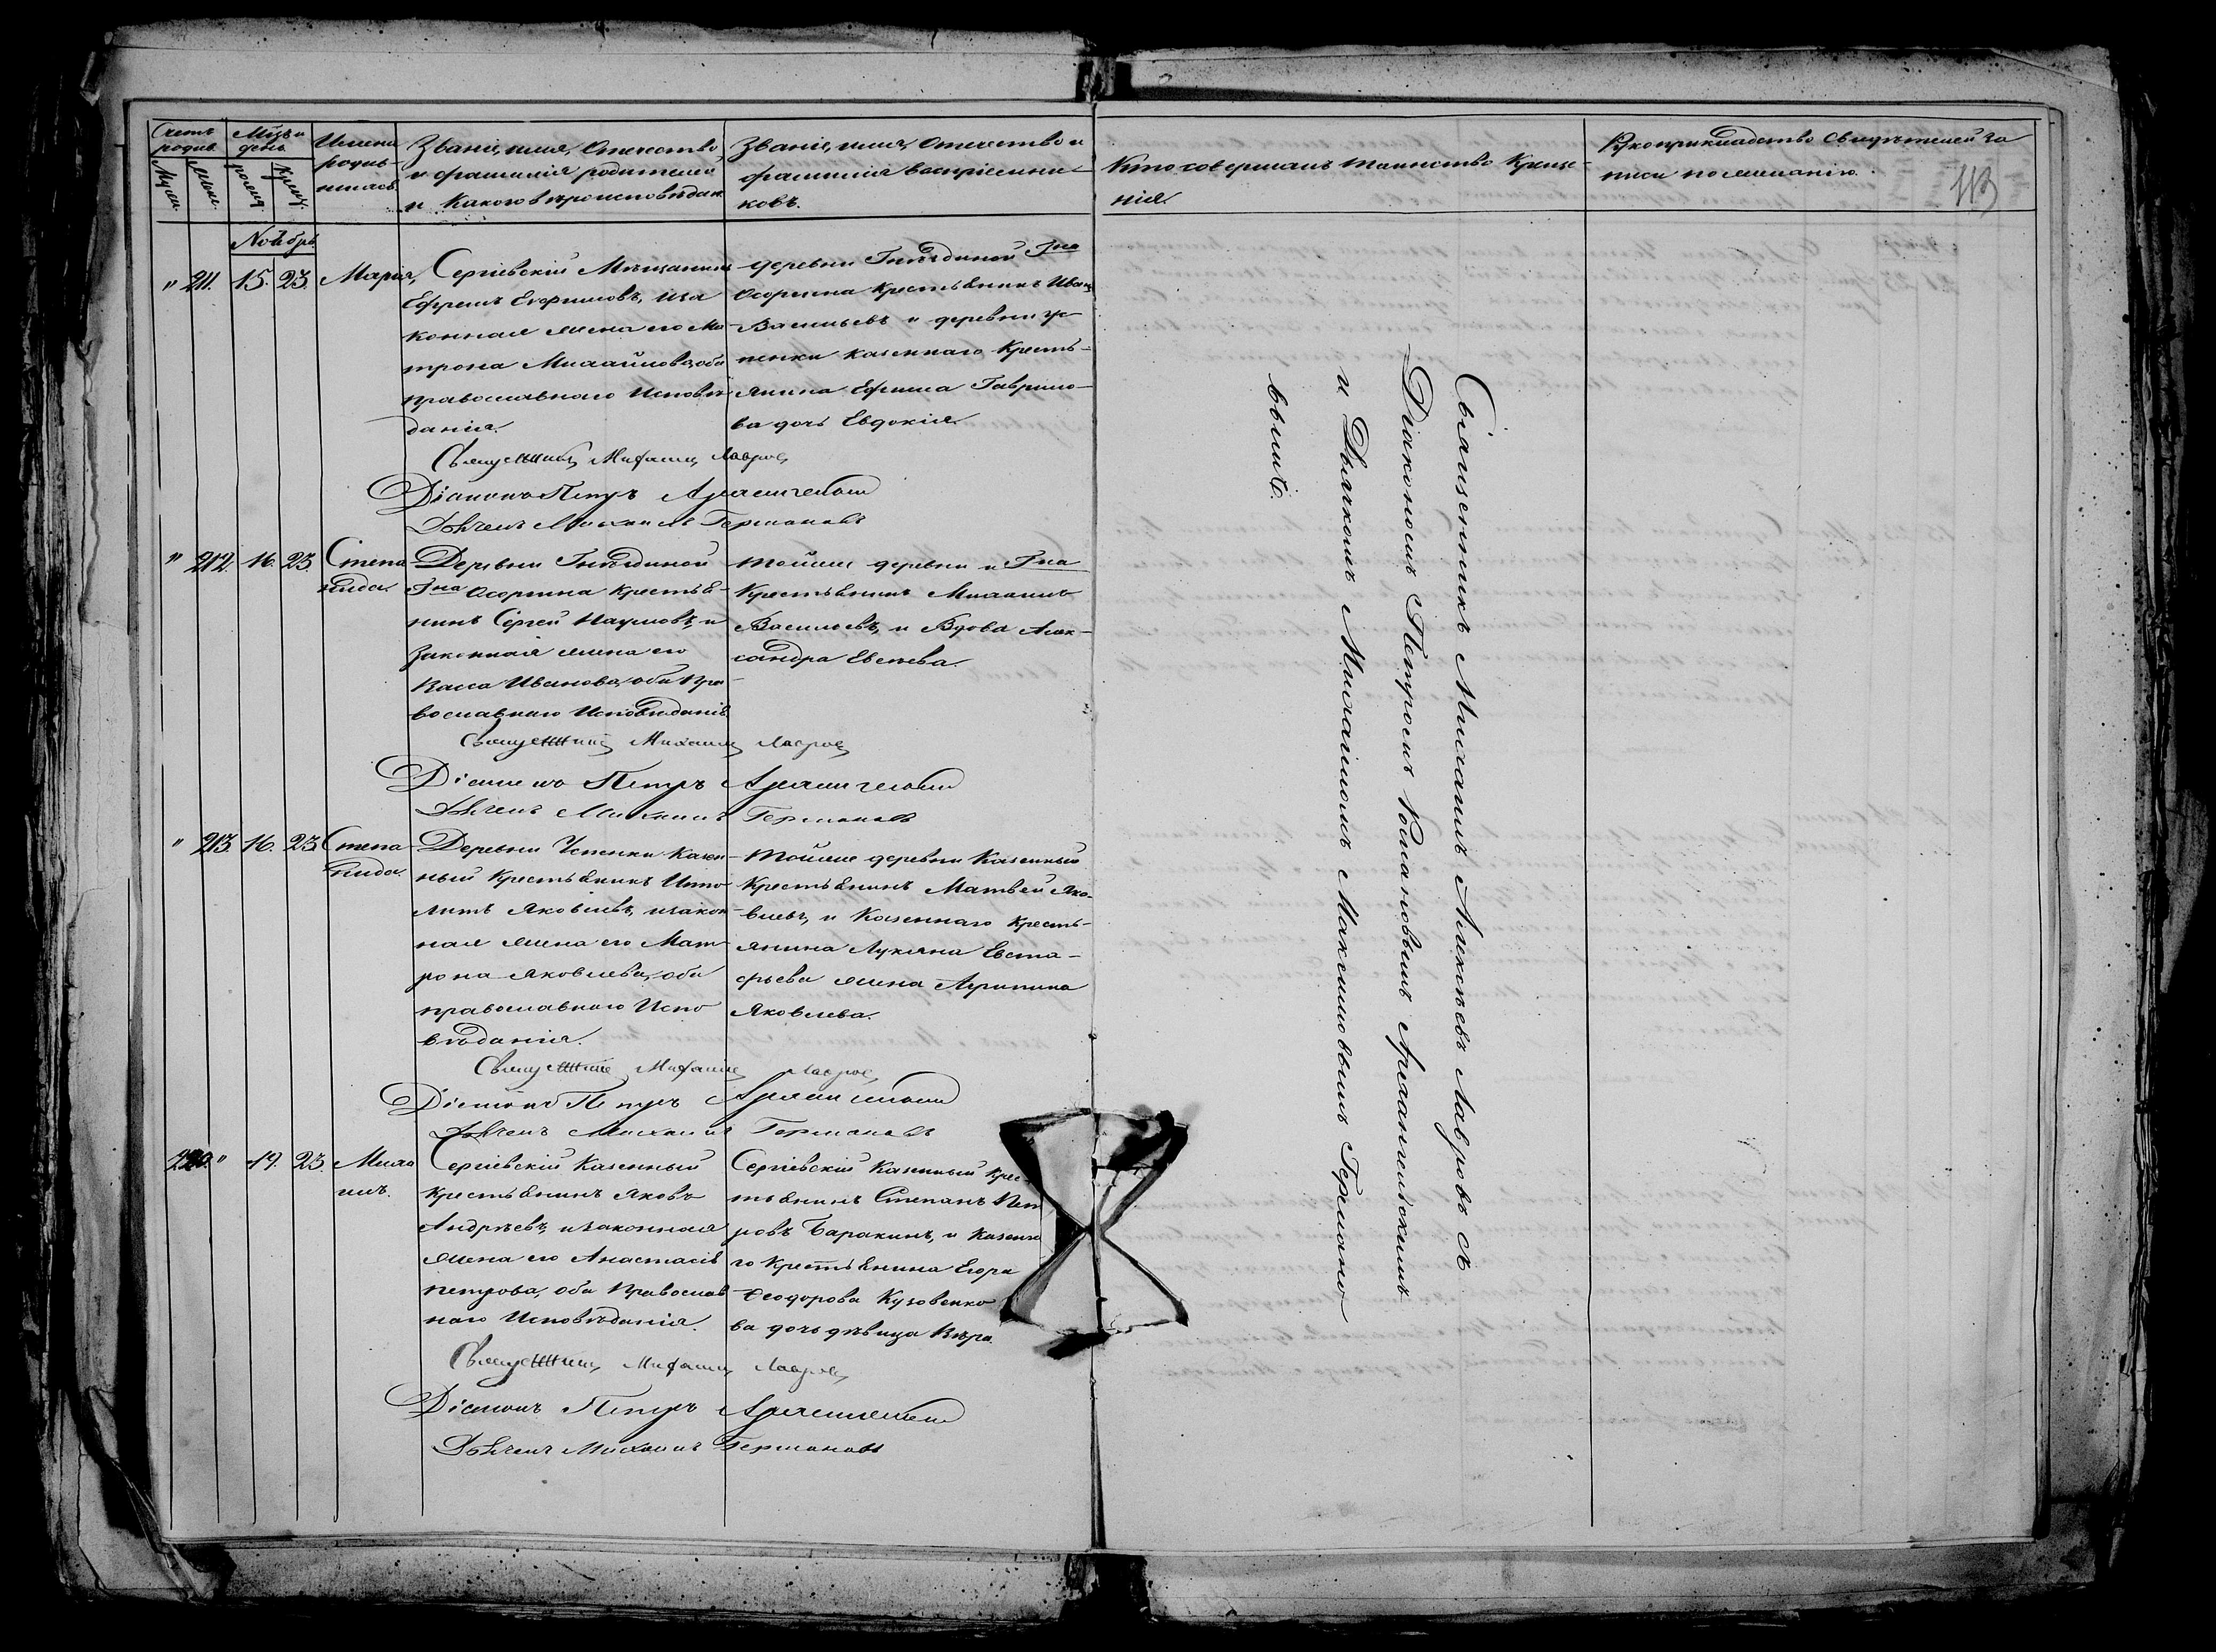 Счетъ родив.
Муж.
Жен.
Мѣц и день
рожд.
Крещ.
Имена родив-
шихся.
Званіе, имя, Отчество,
и фамилія родителей
и Какого вѣроисповѣдан.
Званіе, имя, Отчество и
фамилія воспріемни-
ковъ.
Кто совершалъ таинство Креще-
нія.
Рукоприкладство Свидѣтелей за
писи по желанію.
113
Ноябрь
" 211. 15. 23. Марія,
Сергіевскій Мѣщанинъ
Ефремъ Ефимовъ, иза
конная жена его Ма-
трона Михайлова, оба
православнаго Исповѣ-
данія.
деревни Гнѣздиной Гна
Осоргина крестьянинъ Иванъ
Васильевъ и деревни Че-
пенки казеннаго Кресть-
янина Ефима Гаврило-
ва дочь Евдокія.
Священникъ Михаилъ Лавровъ
Діаконъ Петръ Архангельскій
Дьячекъ Михаилъ Германовъ
" 212. 16. 23. Степа
нида.
Деревни Гнѣздиной
Гна Осоргина крестья-
нинъ Сергей Наумовъ, и
законная жена его
Васса Иванова, оба Пра-
вославнаго Исповѣданія
тойже деревни и Гна
Крестьянинъ Михаилъ
Васильевъ, и Вдова Алек-
сандра Евсеева.
Священникъ Михаилъ Лавровъ
Діаконъ Петръ Архангельскій
Дьячекъ Михаилъ Германовъ
" 213. 16. 23. Степа-
нида.
Деревни Чепенки Казен-
ный Крестьянинъ Иппо-
литъ Яковлевъ, изакон-
ная жена его Мат-
рона Яковлева, оба
православнаго Испо
вѣданія.
тойже деревни Казенный
Крестьянинъ Матвей Яко-
влевъ, и Казеннаго Кресть-
янина Лукіяна Евста-
фьева жена Агрипина
Яковлева.
Священникъ Михаилъ Лавровъ
Діаконъ Петръ Архангельскій
Дьячекъ Михаилъ Германовъ
220. " 19. 23 Миха
илъ.
Сергіевскій Казенный
крестьянинъ Яковъ
Андрѣевъ, изаконная
жена его Анастасія
петрова, оба Православ
наго Исповѣданія.
Сергіевскій Казенный крес-
тьянинъ Степанъ Пет
ровъ Баракинъ, и Казенна
го Крестьянина Егора
Феодорова Кузовенко
ва дочь дѣвица Вѣра.
Священникъ Михаилъ Лавровъ
Діаконъ Петръ Архангельскій
Дьячекъ Михаилъ Германовъ
Священникъ Михаилъ Алексѣевъ Лавровъ съ
Діакономъ Петромъ Романовымъ Архангельскимъ
и Дьячкомъ Михаиломъ Максимовымъ Германо
вымъ.